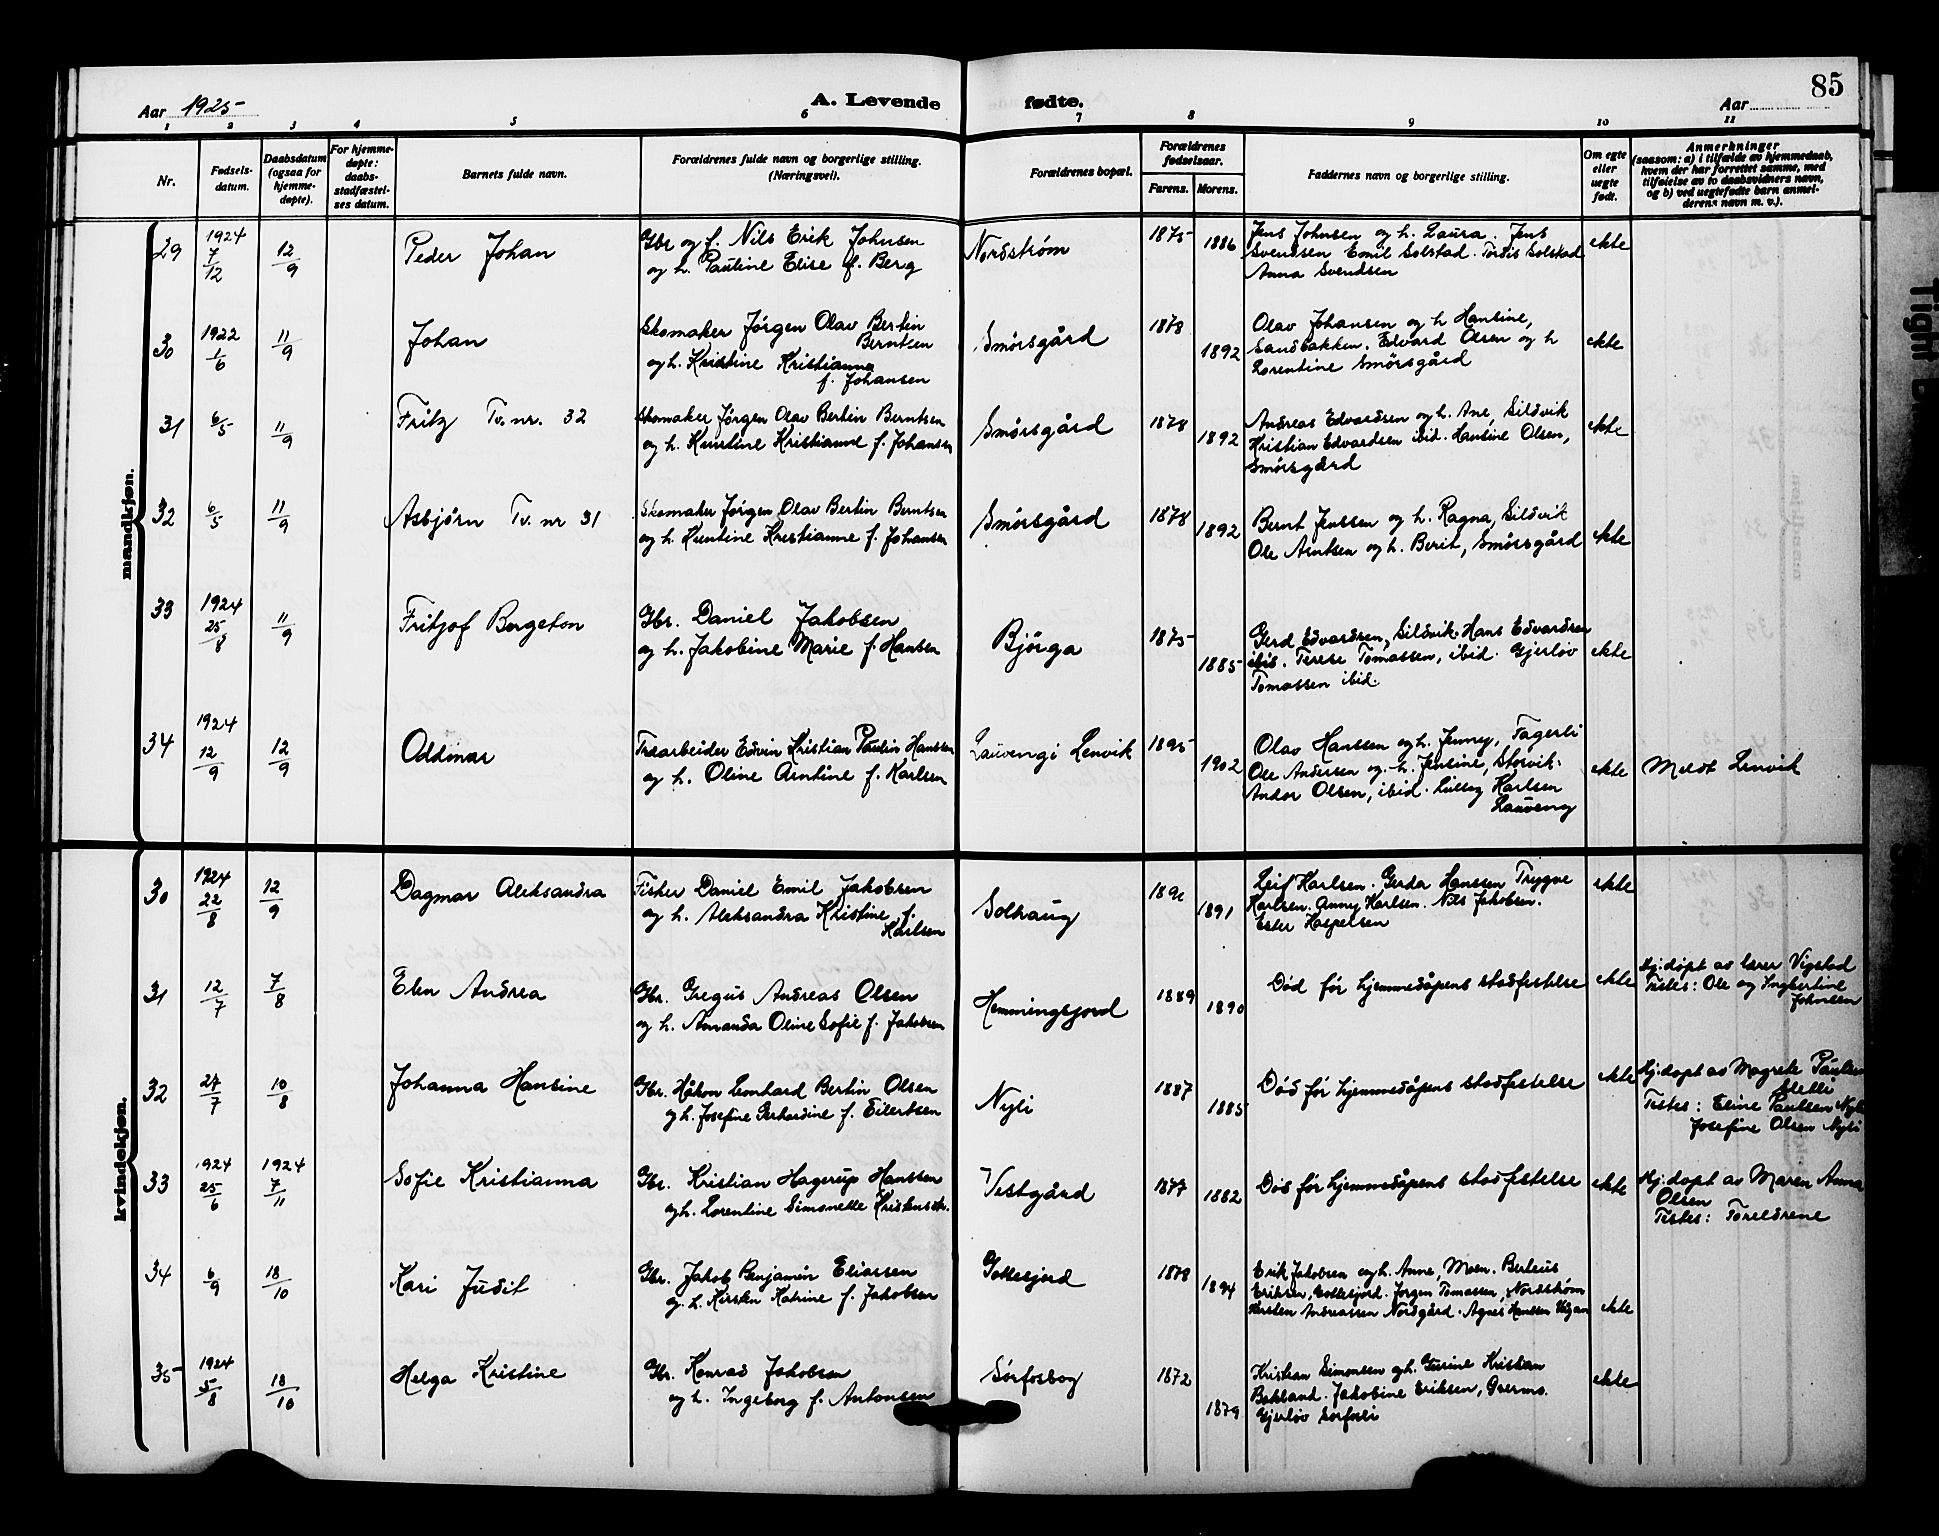 85
Aar 1925
A. Levende
fødte.
Aar
1 2 3 4 5 6 7 8 9 10 11
Nr.
Fødsels-
datum.
Daabsdatum
(ogsaa for
hjemme-
døpte).
For hjemme-
døpte:
daabs-
stadfæstel-
ses datum.
Barnets fulde navn.
Forældrenes fulde navn og borgerlige stilling.
(Næringsvei).
Forældrenes bopæl.
Forældrenes
fødselsaar.
Farens.
Morens.
Faddernes navn og borgerlige stilling.
Om egte
eller
uegte
født.
Anmerkninger
(saasom: a) i tilfælde av hjemmedaab,
hvem der har forrettet samme, med
tilføielse av to daabsvidners navn,
og b) ved uegtefødte barn anmel-
derens navn m. v.).
mandkjøn.
29
1924
7/12
12/9
Peder Johan
Gbr og f. Nils Erik Johnsen
og h. Pauline Elise f. Berg
Nordstrøm
1875
1886
Jens Johnsen og h. Laura. Jens
Svendsen Emil Solstad. Tordis Solstad
Anna Svendsen
ekte
30
1922
1/6
11/9
Johan
Skomaker Jørgen Olav Bertin
Berntsen
og h. Kristine Kristianne
f. Johansen
Smørsgård
1878
1892
Olav Johansen og h Hansine,
Sandbakken. Edvard Olsen og h
Lorentine Smørsgård
ekte
31
6/5
11/9
Fritz Tv. nr. 32
Skomaker Jørgen Olav Bertin Berntsen
og h. Kristine Kristianne f. Johansen
Smørsgård
1878
1892
Andreas Edvardsen og h. Ane, Sildvik
Kristian Edvardsen ibid. Hansine Olsen,
Smørsgård
ekte
32
6/5
11/9
Asbjørn Tv. nr 31
Skomaker Jørgen Olav Bertin Berntsen
og h. Kristine Kristianne f. Johansen
Smørsgård
1878
1892
Bernt Jenssen og h. Ragna, Sildvik
Ole Arntsen og h. Berit, Smørsgård
ekte
33
1924
25/8
11/9
Fritjof Bergeton
Gbr. Daniel Jakobsen
og h. Jakobine Marie f. Hansen
Bjørga
1875
1885
Gerd Edvardsen, Sildvik. Hans Edvardsen
ibid. Terese Tomassen, ibid. Gjerløv
Tomassen ibid.
ekte
34
1924
12/9
12/9
Oddmar
Træarbeider Edvin Kristian Paulin Hanssen
og h. Oline Arntine f. Karlsen
Lauvengi Lenvik
1895
1902
Olav Hanssen og h. Jenney, Fagerli
Ole Andersen og h. Jensine, Storvik.
Andor Olsen, ibid. Karlsen
Lauveng
ekte
Meldt Lenvik
kvindekjøn.
30
1924
22/8
12/9
Dagmar Aleksandra
Fisker Daniel Emil Jakobsen
og h. Aleksandra Kristine f.
Karlsen
Solhaug
1891
Leif Karlsen. Gerda Hanssen Trygve
Karlsen. Anny Karlsen. Nils Jakobsen.
Ester Kaspelsen
ekte
31
12/7
7/8
Elen Andrea
Gbr. Gregus Andreas Olsen
og h. Amanda Oline Sofie f. Jakobsen
Hemmingsjord
1889
1890
Død før hjemmedåpens stadfestelse
ekte
Hj.døpt av lærer Vigstad
Testes: Ole og Ingbertine
Johnsen
32
27/7
10/8
Johanna Hansine
Gbr. Håkon Leonhard Bertin Olsen
og h. Josefine Gerhardine f. Eilertsen
Nyli
1887
1885
Død før hjemmedåpens stadfestelse
ekte
Hj.døpt av Magrete Paulsen
Testes: Eline Paulsen Nyli
Josefine Olsen Nyli
33
1924
25/6
1924
7/11
Sofie Kristianna
Gbr. Kristian Hagerup Hanssen
og h. Lorentine Simonette Kristensdtr.
Vestgård
1877
1882
Død før hjemmedåpens stadfestelse
ekte
Hj.døpt av Maren Anna
Olsen
Testes: Foreldrene
34
6/9
18/10
Kari Judit
Gbr. Jakob Benjamin Eliassen
og h. Kirsten Katrine f. Jakobsen
Gottesjord
1878
1894
Erik Jakobsen og h. Anne, Moen. Berteus
Eriksen, Gottesjord. Jørgen Tomassen, Nordstrøm
Kirsten Andreassen Nordgård. Agnes Hanssen
ekte
35
1924
5/8
18/10
Helga Kristine
Gbr. Konrad Jakobsen
og h. Ingeborg f. Antonsen
Sørfosbog
1872
1879
Kristian Simonsen og h. Gurine Kristian
Bakland. Jakobine Eriksen, Grermo.
Gjerløv Sørfosli
ekte